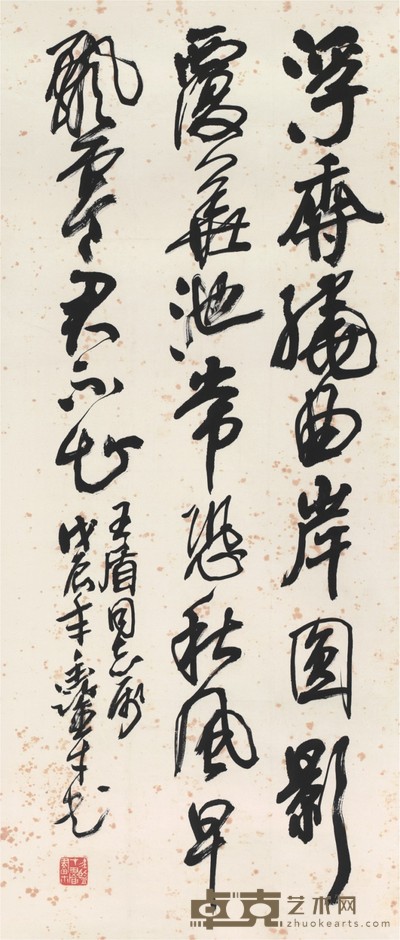 浮香繞曲岸圆影
覆華池常恐秋風早
飄零君不知
王盾同志属
戊辰年
卓克艺术网
zhuokearts.com